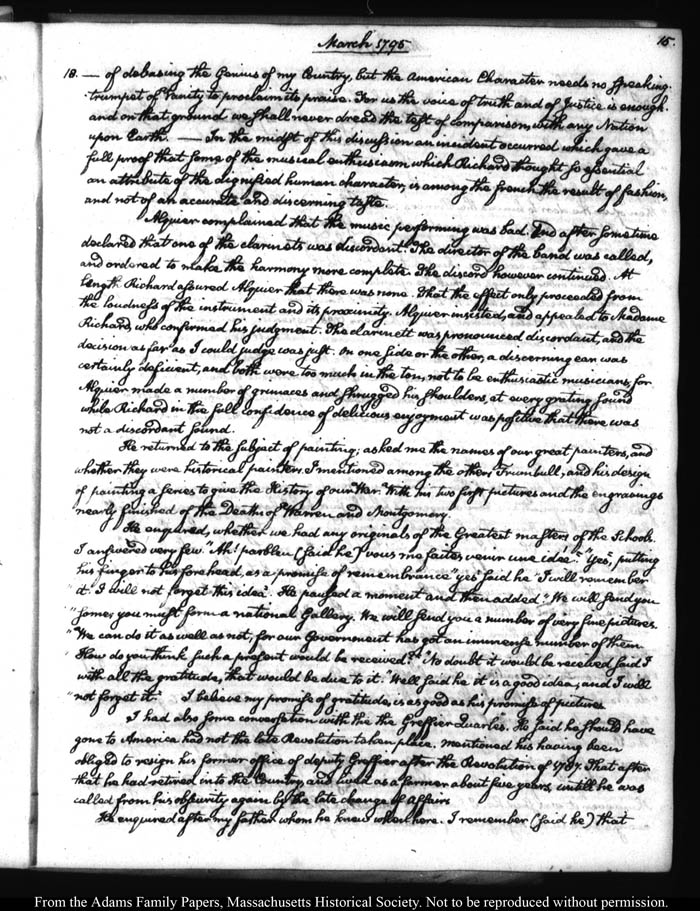 March 1795
15.
18. — of debasing the Genius of my Country, but the American Character needs no speaking-
trumpet of Vanity to proclaim its praise. For us the voice of truth and of Justice is enough.
and on that ground we shall never dread the test of comparison, with any Nation
upon Earth. — In the midst of this discussion an incident occurred which gave a
full proof that some of the musical enthusiasm which Richard thought so essential
an attribute of the dignified human character, is among the french the result of fashion,
and not of an accurate and discerning taste.
Alquier complained that the music performing was bad. And after sometime
declared that one of the clarinets was discordant. The director of the band was called,
and ordered to make the harmony more complete. The discord however continued. At
length Richard assured Alquier that there was none. That the effect only proceeded from
the loudness of the instrument and its proximity. Alquier insisted, and appealed to Madame
Richard, who confirmed his judgment. The clarinett was pronounced discordant, and the
decision as far as I could judge was just. On one side or the other, a discerning ear was
certainly deficient, and both were too much in the ton, not to be enthusiastic musicians, for
Alquier made a number of grimaces and shrugged his shoulders, at every grating sound
while Richard in the full confidence of delicious enjoyment was positive that there was
not a discordant sound.
He returned to the subject of painting; asked me the names of our great painters, and
whether they were historical painters. I mentioned among the others Trumbull, and his design
of painting a series to give the History of our War. With his two first pictures and the engravings
nearly finished of the Deaths of Warren and Montgomery.
He enquired, whether we had any originals of the Greatest masters of the Schools.
I answered very few. "Ah! parbleu (said he) vous me faites venir une idée." "Yes", putting
his finger to his forehead, as a promise of remembrance "yes" said he "I will remember
" it. I will not forget this idea." He paused a moment and then added "We will send you
" some; you must form a national Gallery. We will send you a number of very fine pictures.
" We can do it as well as not, for our Government has got an immense number of them.
" How do you think such a present would be received?" "No doubt it would be received said I
" with all the gratitude, that would be due to it." "Well said he it is a good idea, and I will
" not forget it." I believe my promise of gratitude, is as good as his promise of pictures.
I had also some conversation with the the Greffier Quarles. He said he should have
gone to America had not the late Revolution taken place, mentioned his having been
obliged to resign his former office of deputy Greffier after the Revolution of 1787. That after
that he had retired into the Country, and lived as a farmer about five years, untill he was
called from his obscurity again by the late change of affairs.
He enquired after my father whom he knew when here. I remember (said he) that
From the Adams Family Papers, Massachusetts Historical Society. Not to be reproduced without permission.